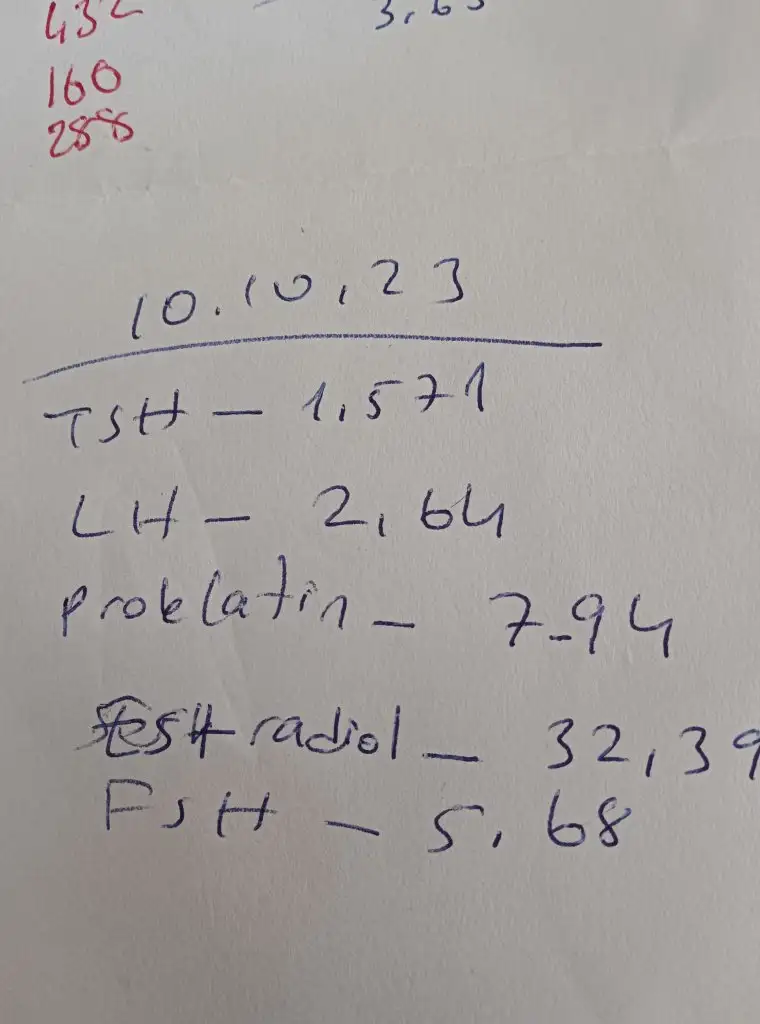 432 3,63
160
288
10.10.23
TSH - 1,571
LH - 2,64
proklatin - 7-94
Esttradiol - 32,39
FSH - 5,68